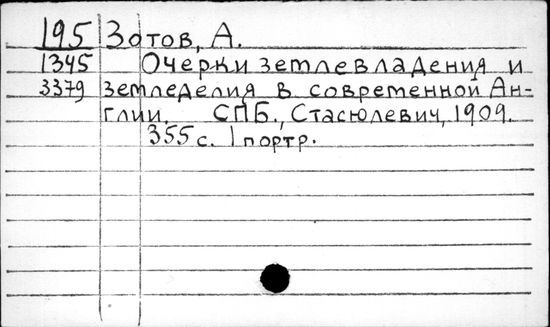 195 Зотов, А.
1345 Очерки землевладения и
3379 земледелия в современной Ан-
глии. СПБ., Стасюлевич, 1909.
355 с. 1 портр.